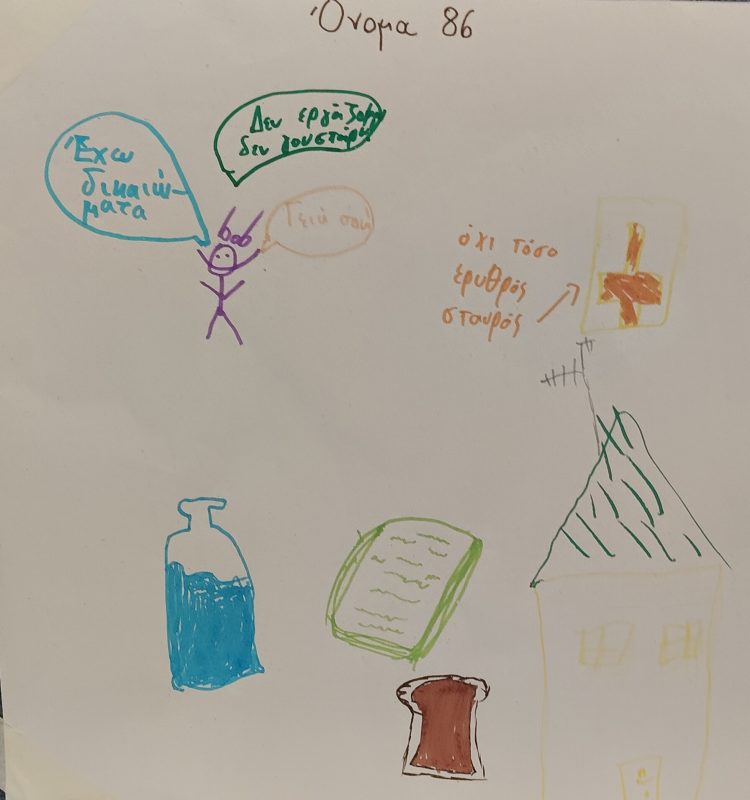 Όνομα 86
Έχω
δικαιώ-
ματα
Δεν εργάζομαι
δεν γουστάρω
Γειά σου
bob
όχι τόσο
ερυθρός
σταυρός